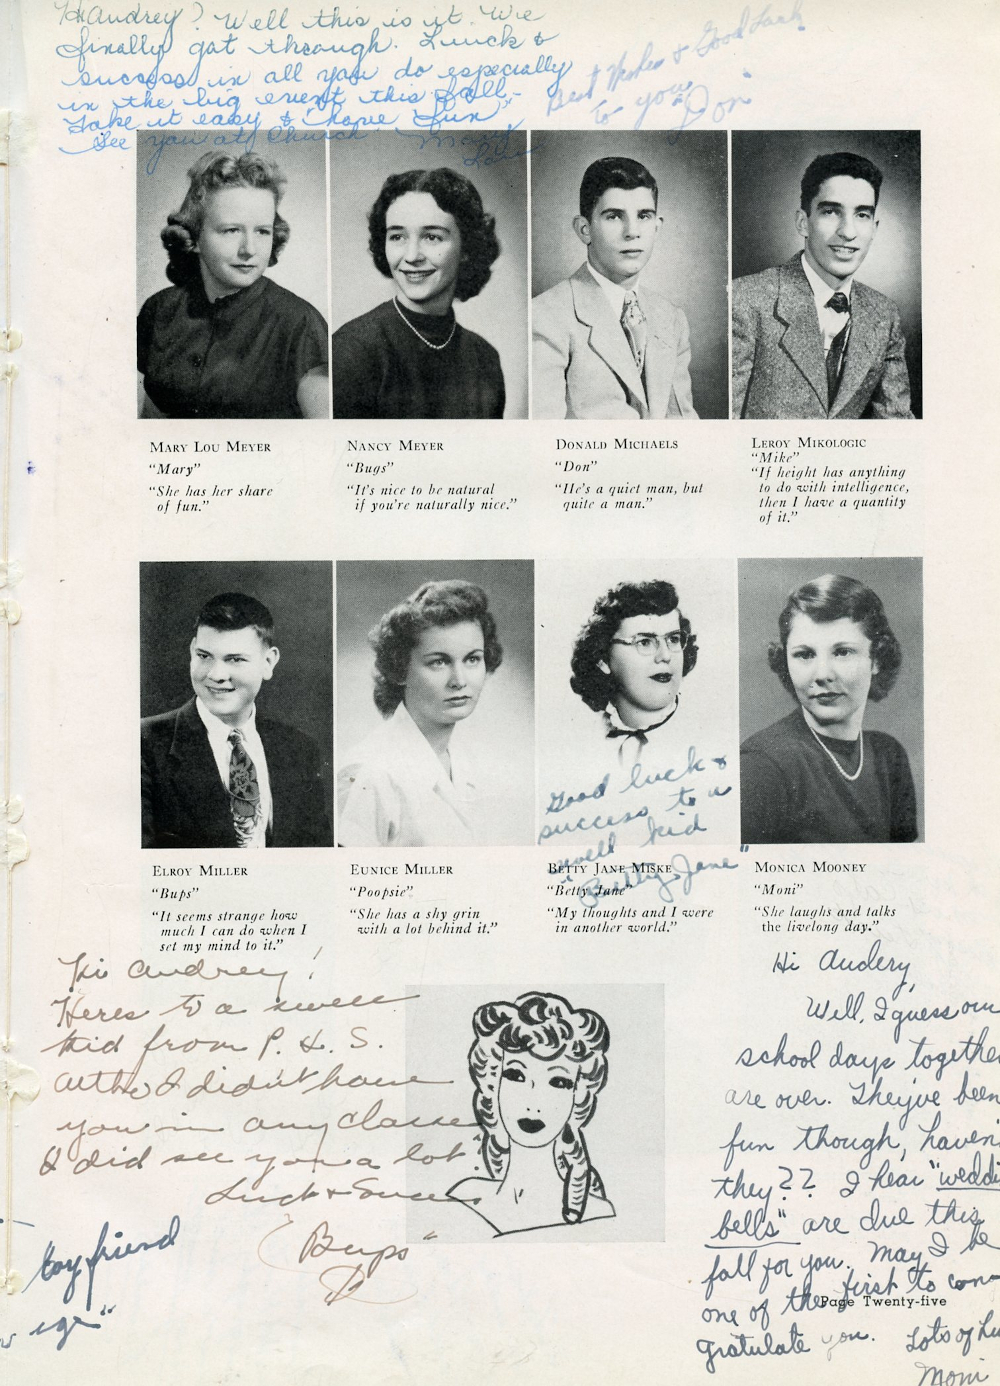 Hi Audrey! Well this is it. We
finally got through. Luck &
success in all you do especially
in the big event this fall.
Take it easy & have fun
See you at Church
Mary
Lou
Best Wishes & Good Luck
to you
"Don"
MARY LOU MEYER
"Mary"
"She has her share
of fun."
NANCY MEYER
"Bugs"
"It's nice to be natural
if you're naturally nice."
DONALD MICHAELS
"Don"
"He's a quiet man, but
quite a man."
LEROY MIKOLOGIC
"Mike"
"If height has anything
to do with intelligence,
then I have a quantity
of it."
Good luck &
success to a
swell kid
"Betty Jane"
ELROY MILLER
"Bups"
"It seems strange how
much I can do when I
set my mind to it."
EUNICE MILLER
"Poopsie"
"She has a shy grin
with a lot behind it."
BETTY JANE MISKE
"Betty Jane"
"My thoughts and I were
in another world."
MONICA MOONEY
"Moni"
"She laughs and talks
the livelong day."
Hi Audrey!
Heres to a swell
kid from P. H. S.
Altho I didn't have
you in any classes
I did see you a lot.
Luck & Success
"Bups"
boyfriend
Hi Audery,
Well, I guess our
school days together
are over. They've been
fun though, haven't
they?? I hear "weddi
bells" are due this
fall for you. May I be
one of the first to con-
gratulate you.
Lots of Lu
Moni
Page Twenty-five